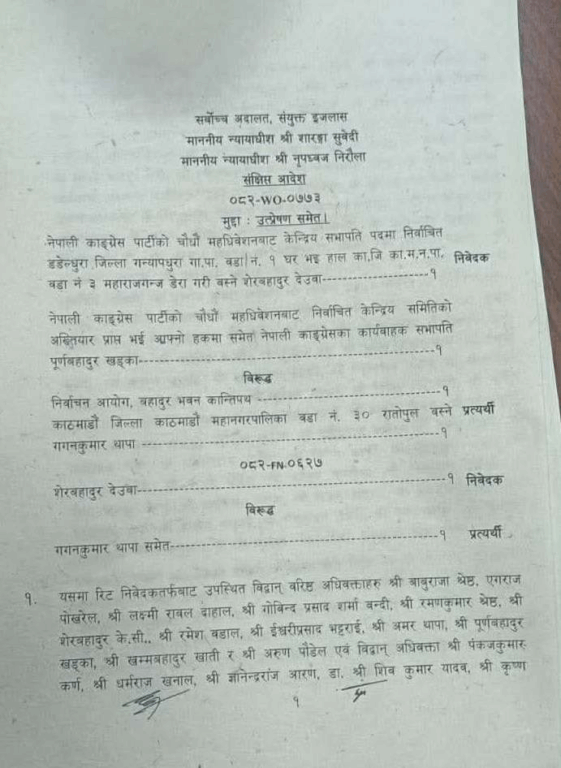 सर्वोच्च अदालत, संयुक्त इजलास
माननीय न्यायाधीश श्री शारङ्गा सुवेदी
माननीय न्यायाधीश श्री नृपध्वज निरौला
संक्षिप्त आदेश
०८२-WO-०७७३
मुद्दा : उत्प्रेषण समेत।
नेपाली काङ्ग्रेस पार्टीको चौधौं महाधिवेशनबाट केन्द्रिय सभापति पदमा निर्वाचित
डडेल्धुरा जिल्ला गन्यापधुरा गा.पा. वडा नं. १ घर भइ हाल का.जि का.म.न.पा. निवेदक
वडा नं ३ महाराजगन्ज डेरा गरी बस्ने शेरबहादुर देउवा-----------------१
नेपाली काङ्ग्रेस पार्टीको चौधौं महधिवेशनबाट निर्वाचित केन्द्रिय समितिको
अख्तियार प्राप्त भई आफ्नो हकमा समेत नेपाली काङ्ग्रेसका कार्यवाहक सभापति
पूर्णबहादुर खड्का-----------------------------------------------१
विरूद्ध
निर्वाचन आयोग, बहादुर भवन कान्तिपथ -----------------------------१
काठमाडौं जिल्ला काठमाडौं महानगरपालिका वडा नं. ३० रातोपुल बस्ने प्रत्यर्थी
गगनकुमार थापा -----------------------------------------------१
०८२-FN-०६२७
शेरबहादुर देउवा------------------------------------------------१ निवेदक
विरूद्ध
गगनकुमार थापा समेत-------------------------------------------१ प्रत्यर्थी
१. यसमा रिट निवेदकतर्फबाट उपस्थित विद्वान् वरिष्ठ अधिवक्ताहरु श्री बाबुराजा श्रेष्ठ, एगराज
पोखरेल, श्री लक्ष्मी रावल दाहाल, श्री गोविन्द प्रसाद शर्मा बन्दी, श्री रमणकुमार श्रेष्ठ, श्री
शेरबहादुर के.सी., श्री रमेश बडाल, श्री ईश्वरीप्रसाद भट्टराई, श्री अमर थापा, श्री पूर्णबहादुर
खड्का, श्री खम्मबहादुर खाती र श्री अरुण पौडेल एवं विद्वान् अधिवक्ता श्री पंकजकुमार
कर्ण, श्री धर्मराज खनाल, श्री ज्ञानेन्द्रराज आरण, डा. श्री शिव कुमार यादव, श्री कृष्ण
१